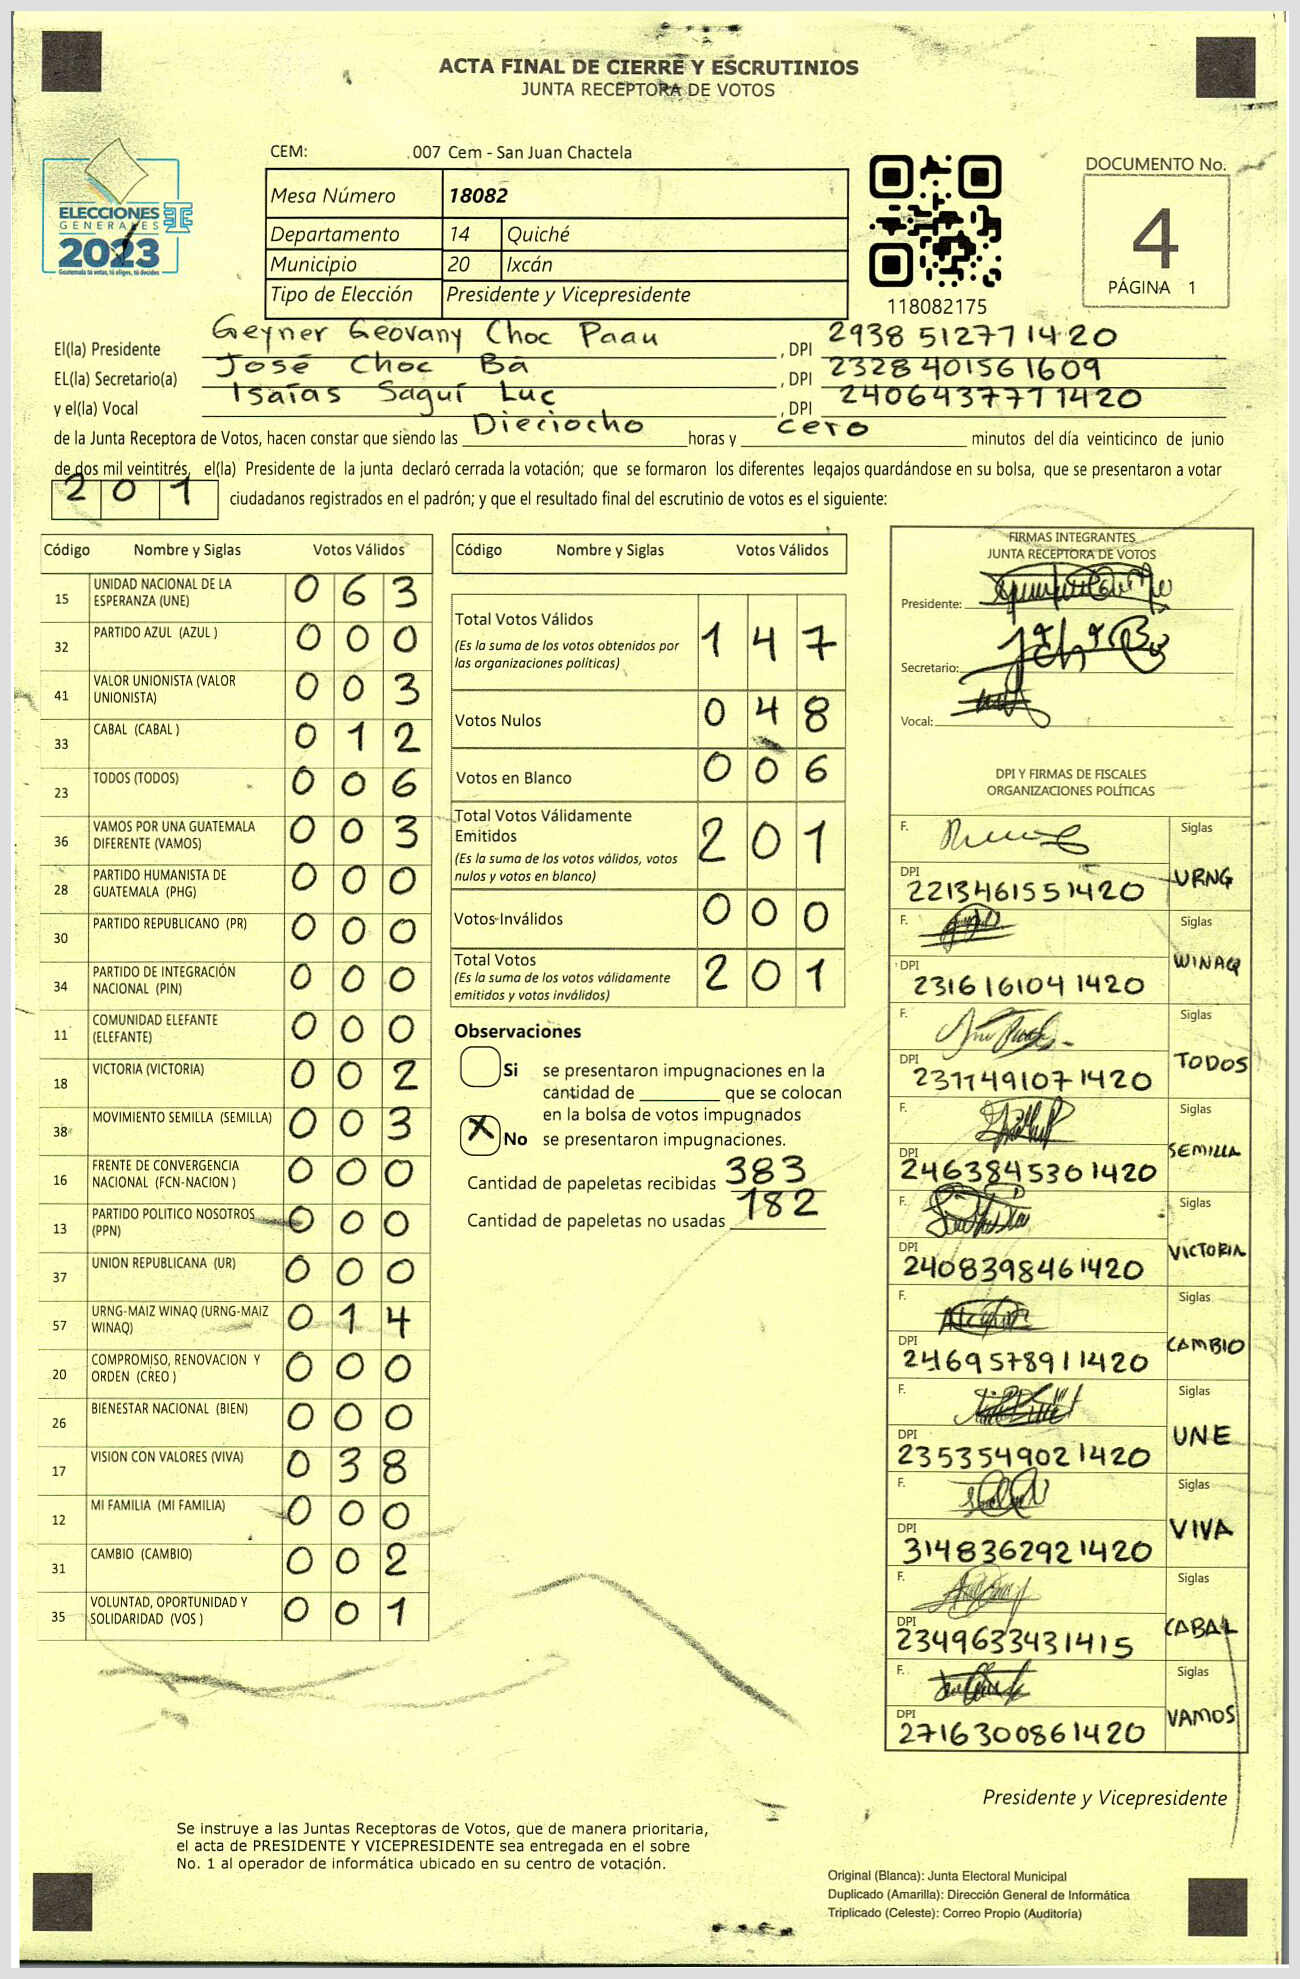 ACTA FINAL DE CIERRE Y ESCRUTINIOS
JUNTA RECEPTORA DE VOTOS
ELECCIONES
GENERALES
2023
Guatemala tú votas, tú eliges, tú decides
CEM: 007 Cem - San Juan Chactela
Mesa Número 18082
Departamento 14 Quiché
Municipio 20 Ixcán
Tipo de Elección Presidente y Vicepresidente
118082175
DOCUMENTO No.
4
PÁGINA 1
El(la) Presidente Geyner Geovany Choc Paau , DPI 2938 51277 1420
EL(la) Secretario(a) José Choc Ba , DPI 2328 40156 1609
y el(la) Vocal Isaías Saquí Luc , DPI 2406437771420
de la Junta Receptora de Votos, hacen constar que siendo las Dieciocho horas y cero minutos del día veinticinco de junio
de dos mil veintitrés, el(la) Presidente de la junta declaró cerrada la votación; que se formaron los diferentes legajos guardándose en su bolsa, que se presentaron a votar
201 ciudadanos registrados en el padrón; y que el resultado final del escrutinio de votos es el siguiente:
Código Nombre y Siglas Votos Válidos
15 UNIDAD NACIONAL DE LA ESPERANZA (UNE) 0 6 3
32 PARTIDO AZUL (AZUL ) 0 0 0
41 VALOR UNIONISTA (VALOR UNIONISTA) 0 0 3
33 CABAL (CABAL ) 0 1 2
23 TODOS (TODOS) 0 0 6
36 VAMOS POR UNA GUATEMALA DIFERENTE (VAMOS) 0 0 3
28 PARTIDO HUMANISTA DE GUATEMALA (PHG) 0 0 0
30 PARTIDO REPUBLICANO (PR) 0 0 0
34 PARTIDO DE INTEGRACIÓN NACIONAL (PIN) 0 0 0
11 COMUNIDAD ELEFANTE (ELEFANTE) 0 0 0
18 VICTORIA (VICTORIA) 0 0 2
38 MOVIMIENTO SEMILLA (SEMILLA) 0 0 3
16 FRENTE DE CONVERGENCIA NACIONAL (FCN-NACION ) 0 0 0
13 PARTIDO POLITICO NOSOTROS (PPN) 0 0 0
37 UNION REPUBLICANA (UR) 0 0 0
57 URNG-MAIZ WINAQ (URNG-MAIZ WINAQ) 0 1 4
20 COMPROMISO, RENOVACION Y ORDEN (CREO ) 0 0 0
26 BIENESTAR NACIONAL (BIEN) 0 0 0
17 VISION CON VALORES (VIVA) 0 3 8
12 MI FAMILIA (MI FAMILIA) 0 0 0
31 CAMBIO (CAMBIO) 0 0 2
35 VOLUNTAD, OPORTUNIDAD Y SOLIDARIDAD (VOS ) 0 0 1
Código Nombre y Siglas Votos Válidos
Total Votos Válidos 1 4 7
(Es la suma de los votos obtenidos por
las organizaciones políticas)
Votos Nulos 0 4 8
Votos en Blanco 0 0 6
Total Votos Válidamente
Emitidos 2 0 1
(Es la suma de los votos válidos, votos
nulos y votos en blanco)
Votos Inválidos 0 0 0
Total Votos 2 0 1
(Es la suma de los votos válidamente
emitidos y votos inválidos)
Observaciones
Si se presentaron impugnaciones en la
cantidad de ________ que se colocan
en la bolsa de votos impugnados
X No se presentaron impugnaciones.
Cantidad de papeletas recibidas 383
Cantidad de papeletas no usadas 182
FIRMAS INTEGRANTES
JUNTA RECEPTORA DE VOTOS
Presidente:
Secretario:
Vocal:
DPI Y FIRMAS DE FISCALES
ORGANIZACIONES POLÍTICAS
F. Siglas
DPI 2213461551420 URNG
F. Siglas
DPI 2316161041420 WINAQ
F. Siglas
DPI 2311491071420 TODOS
F. Siglas
DPI 2463845301420 SEMILLA
F. Siglas
DPI 2408398461420 VICTORIA
F. Siglas
DPI 2469578911420 CAMBIO
F. Siglas
DPI 2353549021420 UNE
F. Siglas
DPI 3148362921420 VIVA
F. Siglas
DPI 2349633431415 CABAL
F. Siglas
DPI 2716300861420 VAMOS
Presidente y Vicepresidente
Se instruye a las Juntas Receptoras de Votos, que de manera prioritaria,
el acta de PRESIDENTE Y VICEPRESIDENTE sea entregada en el sobre
No. 1 al operador de informática ubicado en su centro de votación.
Original (Blanca): Junta Electoral Municipal
Duplicado (Amarilla): Dirección General de Informática
Triplicado (Celeste): Correo Propio (Auditoría)